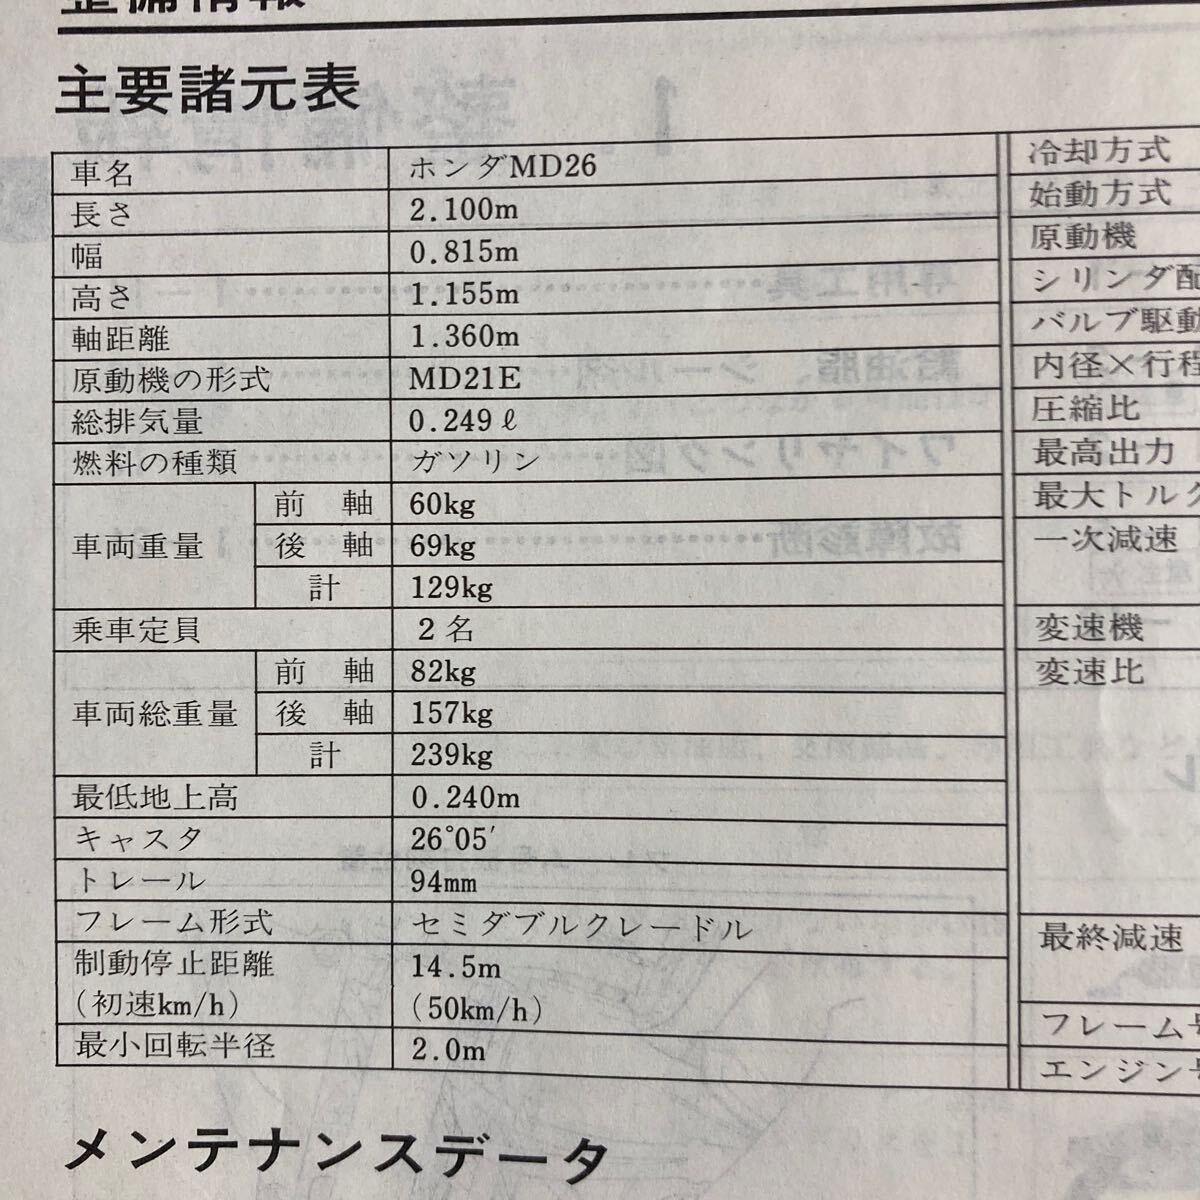 整備情報
主要諸元表
車名 ホンダMD26
長さ 2.100m
幅 0.815m
高さ 1.155m
軸距離 1.360m
原動機の形式 MD21E
総排気量 0.249ℓ
燃料の種類 ガソリン
車両重量 前軸 60kg
後軸 69kg
計 129kg
乗車定員 2名
車両総重量 前軸 82kg
後軸 157kg
計 239kg
最低地上高 0.240m
キャスタ 26°05′
トレール 94mm
フレーム形式 セミダブルクレードル
制動停止距離 14.5m
(初速km/h) (50km/h)
最小回転半径 2.0m
冷却方式
始動方式
原動機
シリンダ配
バルブ駆動
内径×行程
圧縮比
最高出力
最大トルク
一次減速
変速機
変速比
最終減速
フレーム号
エンジン号
メンテナンスデータ